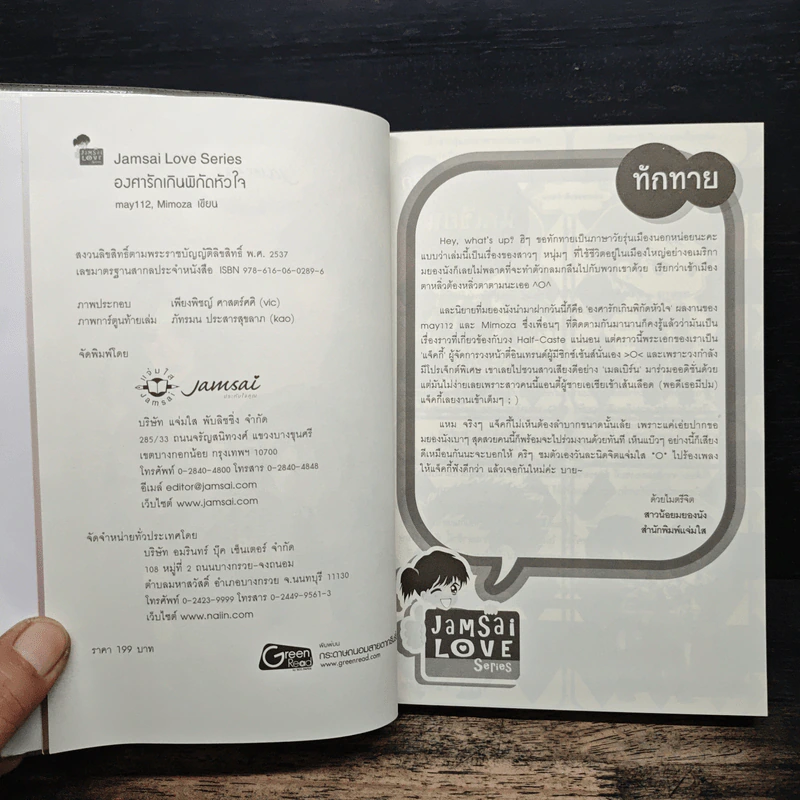 Jamsai Love Series
องศารักเกินพิกัดหัวใจ
may112, Mimoza เขียน
สงวนลิขสิทธิ์ตามพระราชบัญญัติลิขสิทธิ์ พ.ศ. 2537
เลขมาตรฐานสากลประจำหนังสือ ISBN 978-616-06-0289-6
ภาพประกอบ เพียงพิชญ์ ศาสตร์ศศิ (vic)
ภาพการ์ตูนท้ายเล่ม ภัทรมน ประสารสุขลาภ (kao)
จัดพิมพ์โดย
แจ่มใส
Jamsai
Jamsai
บริษัท แจ่มใส พับลิชชิ่ง จำกัด
285/33 ถนนจรัญสนิทวงศ์ แขวงบางขุนศรี
เขตบางกอกน้อย กรุงเทพฯ 10700
โทรศัพท์ 0-2840-4800 โทรสาร 0-2840-4848
อีเมล์ editor@jamsai.com
เว็บไซต์ www.jamsai.com
จัดจำหน่ายทั่วประเทศโดย
บริษัท อมรินทร์ บุ๊ค เซ็นเตอร์ จำกัด
108 หมู่ที่ 2 ถนนบางกรวย-จงถนอม
ตำบลมหาสวัสดิ์ อำเภอบางกรวย จ.นนทบุรี 11130
โทรศัพท์ 0-2423-9999 โทรสาร 0-2449-9561-3
เว็บไซต์ www.naiin.com
ราคา 199 บาท
Green Read
พิมพ์บน
กระดาษถนอมสายตากรีนรี้ด
www.greenread.com
ทักทาย
Hey, what's up? ฮิๆ ขอทักทายเป็นภาษาวัยรุ่นเมืองนอกหน่อยนะคะ
แบบว่าเล่มนี้เป็นเรื่องของสาวๆ หนุ่มๆ ที่ใช้ชีวิตอยู่ในเมืองใหญ่อย่างอเมริกา
มยองนังก็เลยไม่พลาดที่จะทำตัวกลมกลืนไปกับพวกเขาด้วย เรียกว่าเข้าเมือง
ตาหลิ่วต้องหลิ่วตาตามนะเออ ^O^
และนิยายที่มยองนังนำมาฝากวันนี้ก็คือ 'องศารักเกินพิกัดหัวใจ' ผลงานของ
may112 และ Mimoza ซึ่งเพื่อนๆ ที่ติดตามกันมานานก็คงรู้แล้วว่ามันเป็น
เรื่องราวที่เกี่ยวข้องกับวง Half-Caste แน่นอน แต่คราวนี้พระเอกของเราเป็น
'แจ็คกี้' ผู้จัดการวงหน้าตี๋อินเทรนด์ผู้มีซิกซ์เซ้นส์นั่นเอง >O< และเพราะวงกำลัง
มีโปรเจ็กต์พิเศษ เขาเลยไปชวนสาวเสียงดีอย่าง 'เมลเบิร์น' มาร่วมออดิชันด้วย
แต่มันไม่ง่ายเลยเพราะสาวคนนี้แอนตี้ผู้ชายเอเชียเข้าเส้นเลือด (พอดีเธอมีปม)
แจ็คกี้เลยงานเข้าเต็มๆ ; )
แหม จริงๆ แจ็คกี้ไม่เห็นต้องลำบากขนาดนั้นเล้ย เพราะแค่เอ่ยปากขอ
มยองนังเบาๆ สุดสวยคนนี้ก็พร้อมจะไปร่วมงานด้วยทันที เห็นแบ๊วๆ อย่างนี้ก็เสียง
ดีเหมือนกันนะจะบอกให้ คริๆ ชมตัวเองวันละนิดจิตแจ่มใส *O* ไปร้องเพลง
ให้แจ็คกี้ฟังดีกว่า แล้วเจอกันใหม่ค่ะ บาย~
ด้วยไมตรีจิต
สาวน้อยมยองนัง
สำนักพิมพ์แจ่มใส
JAMSAI
LOVE
Series